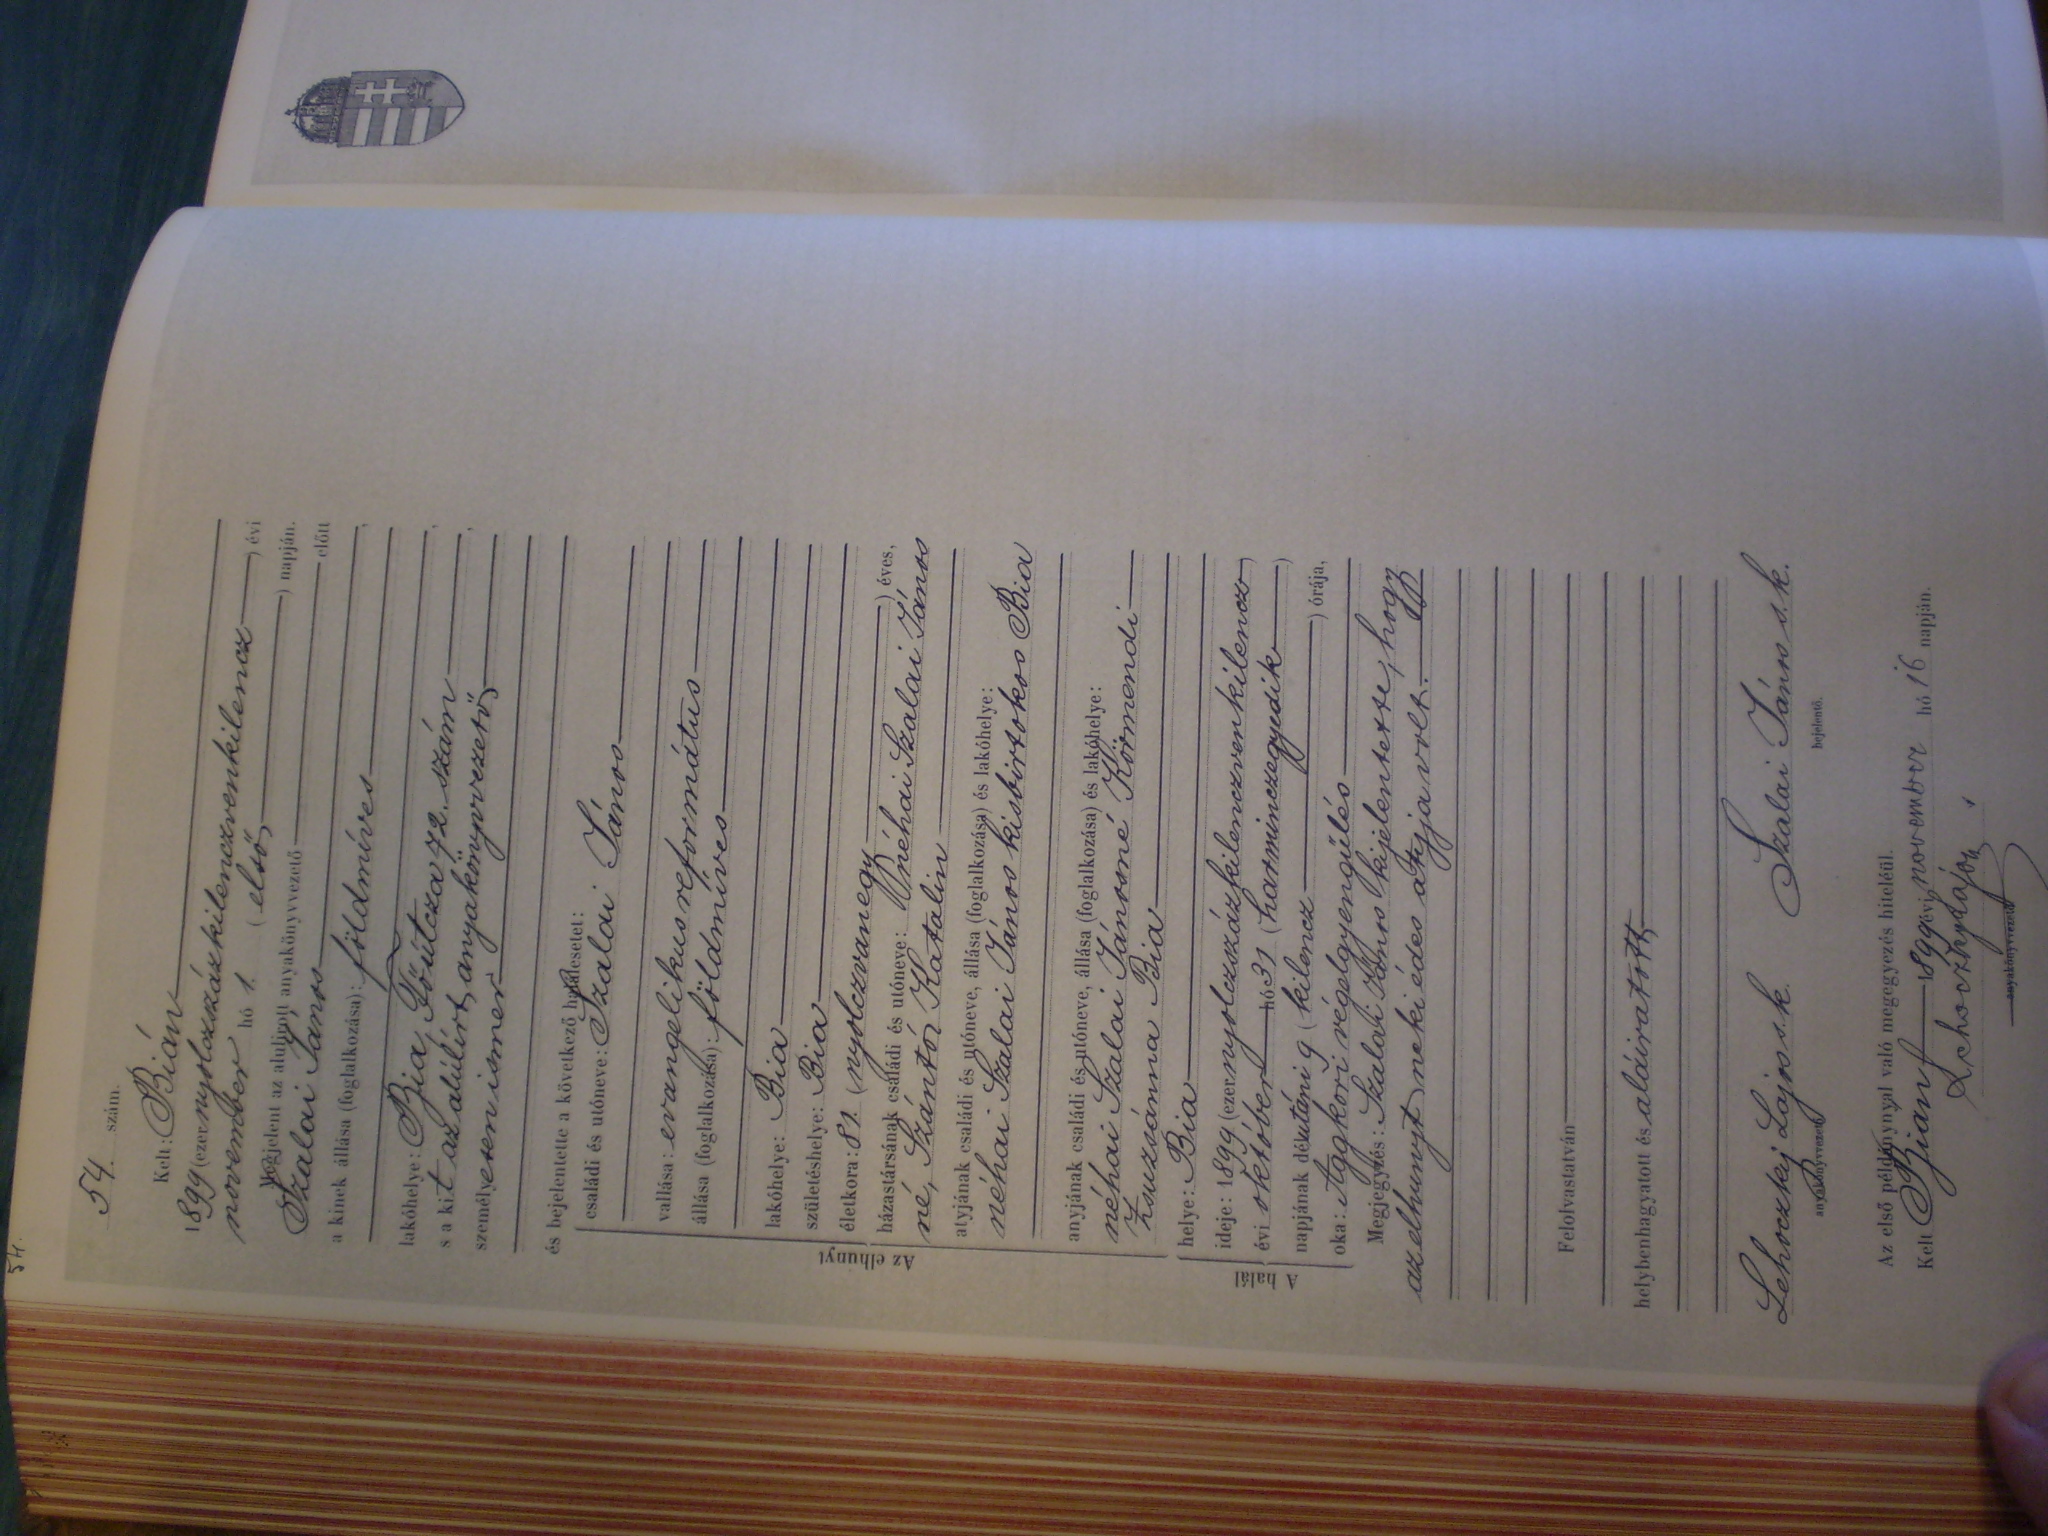 54.
54. szám.
Kelt: Bián
1899 (ezernyolczszázkilenczvenkilencz) évi
november hó 1. (első) napján.
Megjelent az alulirott anyakönyvvezető előtt
Szalai János
a kinek állása (foglalkozása): földmíves,
lakóhelye: Bia, Főútcza 72. szám,
s a kit az alúlírt anyakönyvvezető,
személyesen ismer
és bejelentette a következő halálesetet:
Az elhunyt
családi és utóneve: Szalai János
vallása: evangelikus református
állása (foglalkozása): földmíves
lakóhelye: Bia
születéshelye: Bia
életkora: 81. (nyolczvanegy) éves,
házastársának családi és utóneve: néhai Szalai János
né, Szántó Katalin
atyjának családi és utóneve, állása (foglalkozása) és lakóhelye:
néhai Szalai János kisbirtokos Bia
anyjának családi és utóneve, állása (foglalkozása) és lakóhelye:
néhai Szalai Jánosné Körmendi
Zsuzsánna Bia
A halál
helye: Bia
ideje: 1899 (ezernyolczszázkilenczvenkilencz)
évi október hó 31 (harminczegyedik)
napjának délutáni 9 (kilencz) órája,
oka: Aggkori végelgyengülés
Megjegyzés: Szalai János kijelentette, hogy
az elhunyt neki édes atyja volt.
Felolvastatván
helybenhagyatott és aláiratott
Lehoczky Lajos s.k. Szalai János s.k.
anyakönyvvezető. bejelentő.
Az első példánynyal való megegyezés hiteléül.
Kelt Bián 1899 évi november hó 16 napján.
Lehoczky Lajos
anyakönyvvezető